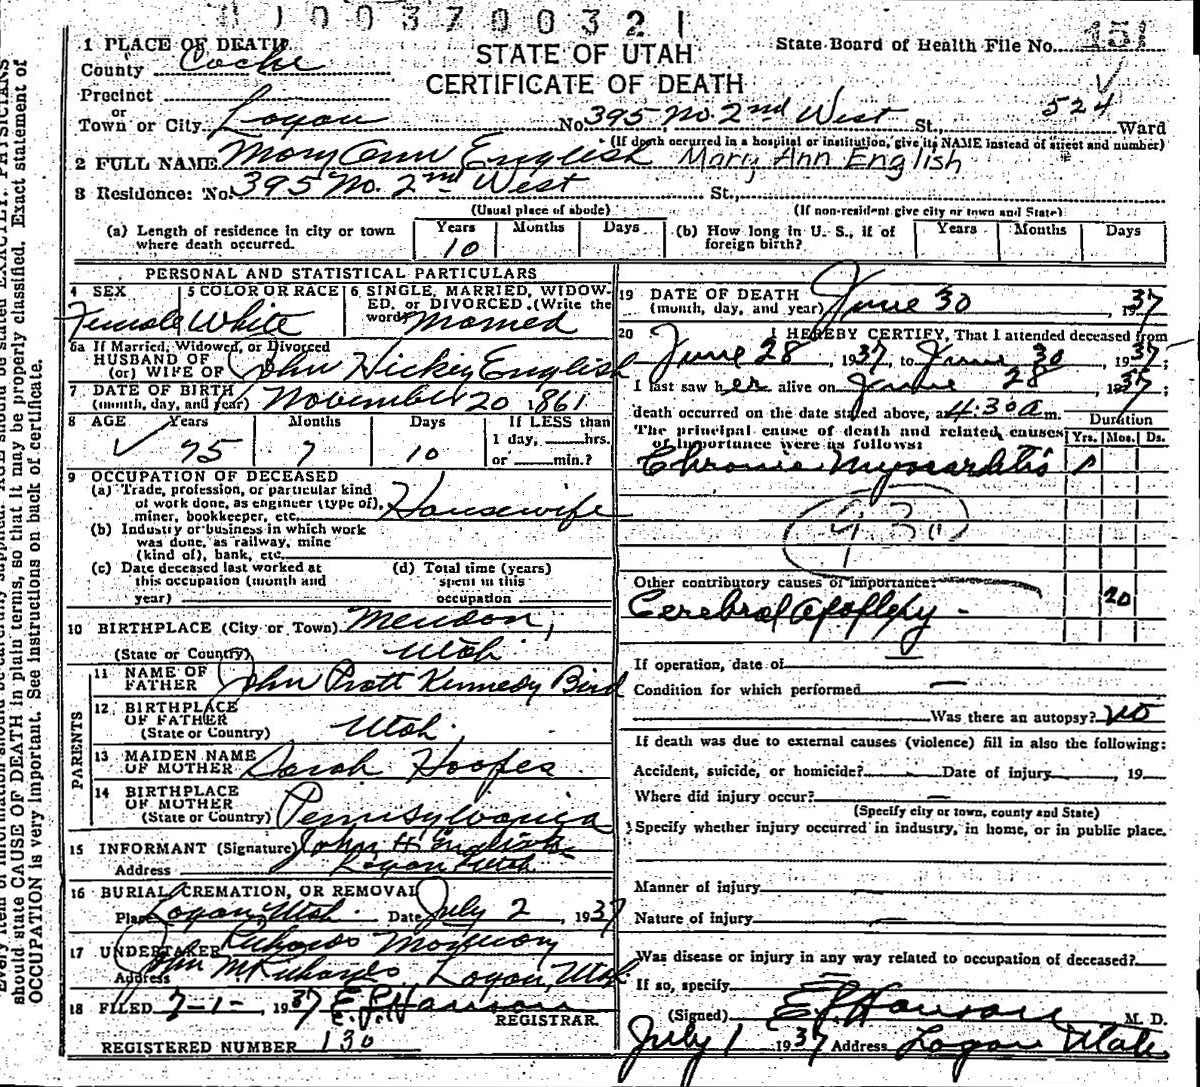 00370032 1
1 PLACE OF DEATH
County Cache
STATE OF UTAH
CERTIFICATE OF DEATH
State Board of Health File No. 151
Precinct
or
Town or City Logan No. 395 No. 2nd West St., 524 Ward
(If death occurred in a hospital or institution, give its NAME instead of street and number)
2 FULL NAME Mary Ann English Mary Ann English
3 Residence: No. 395 No. 2nd West St.,
(Usual place of abode) (If non-resident give city or town and State)
(a) Length of residence in city or town where death occurred. Years 10 Months Days (b) How long in U. S., if of foreign birth? Years Months Days
PERSONAL AND STATISTICAL PARTICULARS
4 SEX Female
5 COLOR OR RACE White
6 SINGLE, MARRIED, WIDOWED, or DIVORCED (Write the word) Married
6a If Married, Widowed, or Divorced
HUSBAND OF
(or) WIFE OF John Hickey English
7 DATE OF BIRTH
(month, day, and year) November 20 1861
8 AGE Years 75 Months 7 Days 10 If LESS than
1 day, hrs.
or min.?
9 OCCUPATION OF DECEASED
(a) Trade, profession, or particular kind
of work done, as engineer (type of),
miner, bookkeeper, etc. Housewife
(b) Industry or business in which work
was done, as railway, mine
(kind of), bank, etc.
(c) Date deceased last worked at
this occupation (month and
year)
(d) Total time (years)
spent in this
occupation
10 BIRTHPLACE (City or Town) Mendon,
(State or Country) Utah
PARENTS
11 NAME OF
FATHER John Pratt Kennedy Bird
12 BIRTHPLACE
OF FATHER
(State or Country) Utah.
13 MAIDEN NAME
OF MOTHER Sarah Hoopes
14 BIRTHPLACE
OF MOTHER
(State or Country) Pennsylvania
15 INFORMANT (Signature) John H English
Address Logan Utah
16 BURIAL, CREMATION, OR REMOVAL
Place Logan, Utah. Date July 2, 1937
17 UNDERTAKER Richards Mortuary
Address John M Richards. Logan, Utah
18 FILED 7-1-, 1937 E. L. Hanson
REGISTRAR.
REGISTERED NUMBER 130
19 DATE OF DEATH
(month, day, and year) June 30, 1937
20 I HEREBY CERTIFY, That I attended deceased from
June 28, 1937, to June 30, 1937;
I last saw her alive on June 28, 1937;
death occurred on the date stated above, at 4:30 a m.
Duration
The principal cause of death and related causes
of importance were as follows: Yrs. Mos. Ds.
Chronic Myocarditis
930
Other contributory causes of importance:
Cerebral apoplexy - 20
If operation, date of
Condition for which performed
Was there an autopsy? no
If death was due to external causes (violence) fill in also the following:
Accident, suicide, or homicide? Date of injury , 19
Where did injury occur?
(Specify city or town, county and State)
Specify whether injury occurred in industry, in home, or in public place.
Manner of injury
Nature of injury
Was disease or injury in any way related to occupation of deceased?
If so, specify
(Signed) E. L. Hanson M. D.
July 1 1937 Address Logan Utah
should state CAUSE OF DEATH in plain terms, so that it may be properly classified. Exact statement of
OCCUPATION is very important. See instructions on back of certificate.